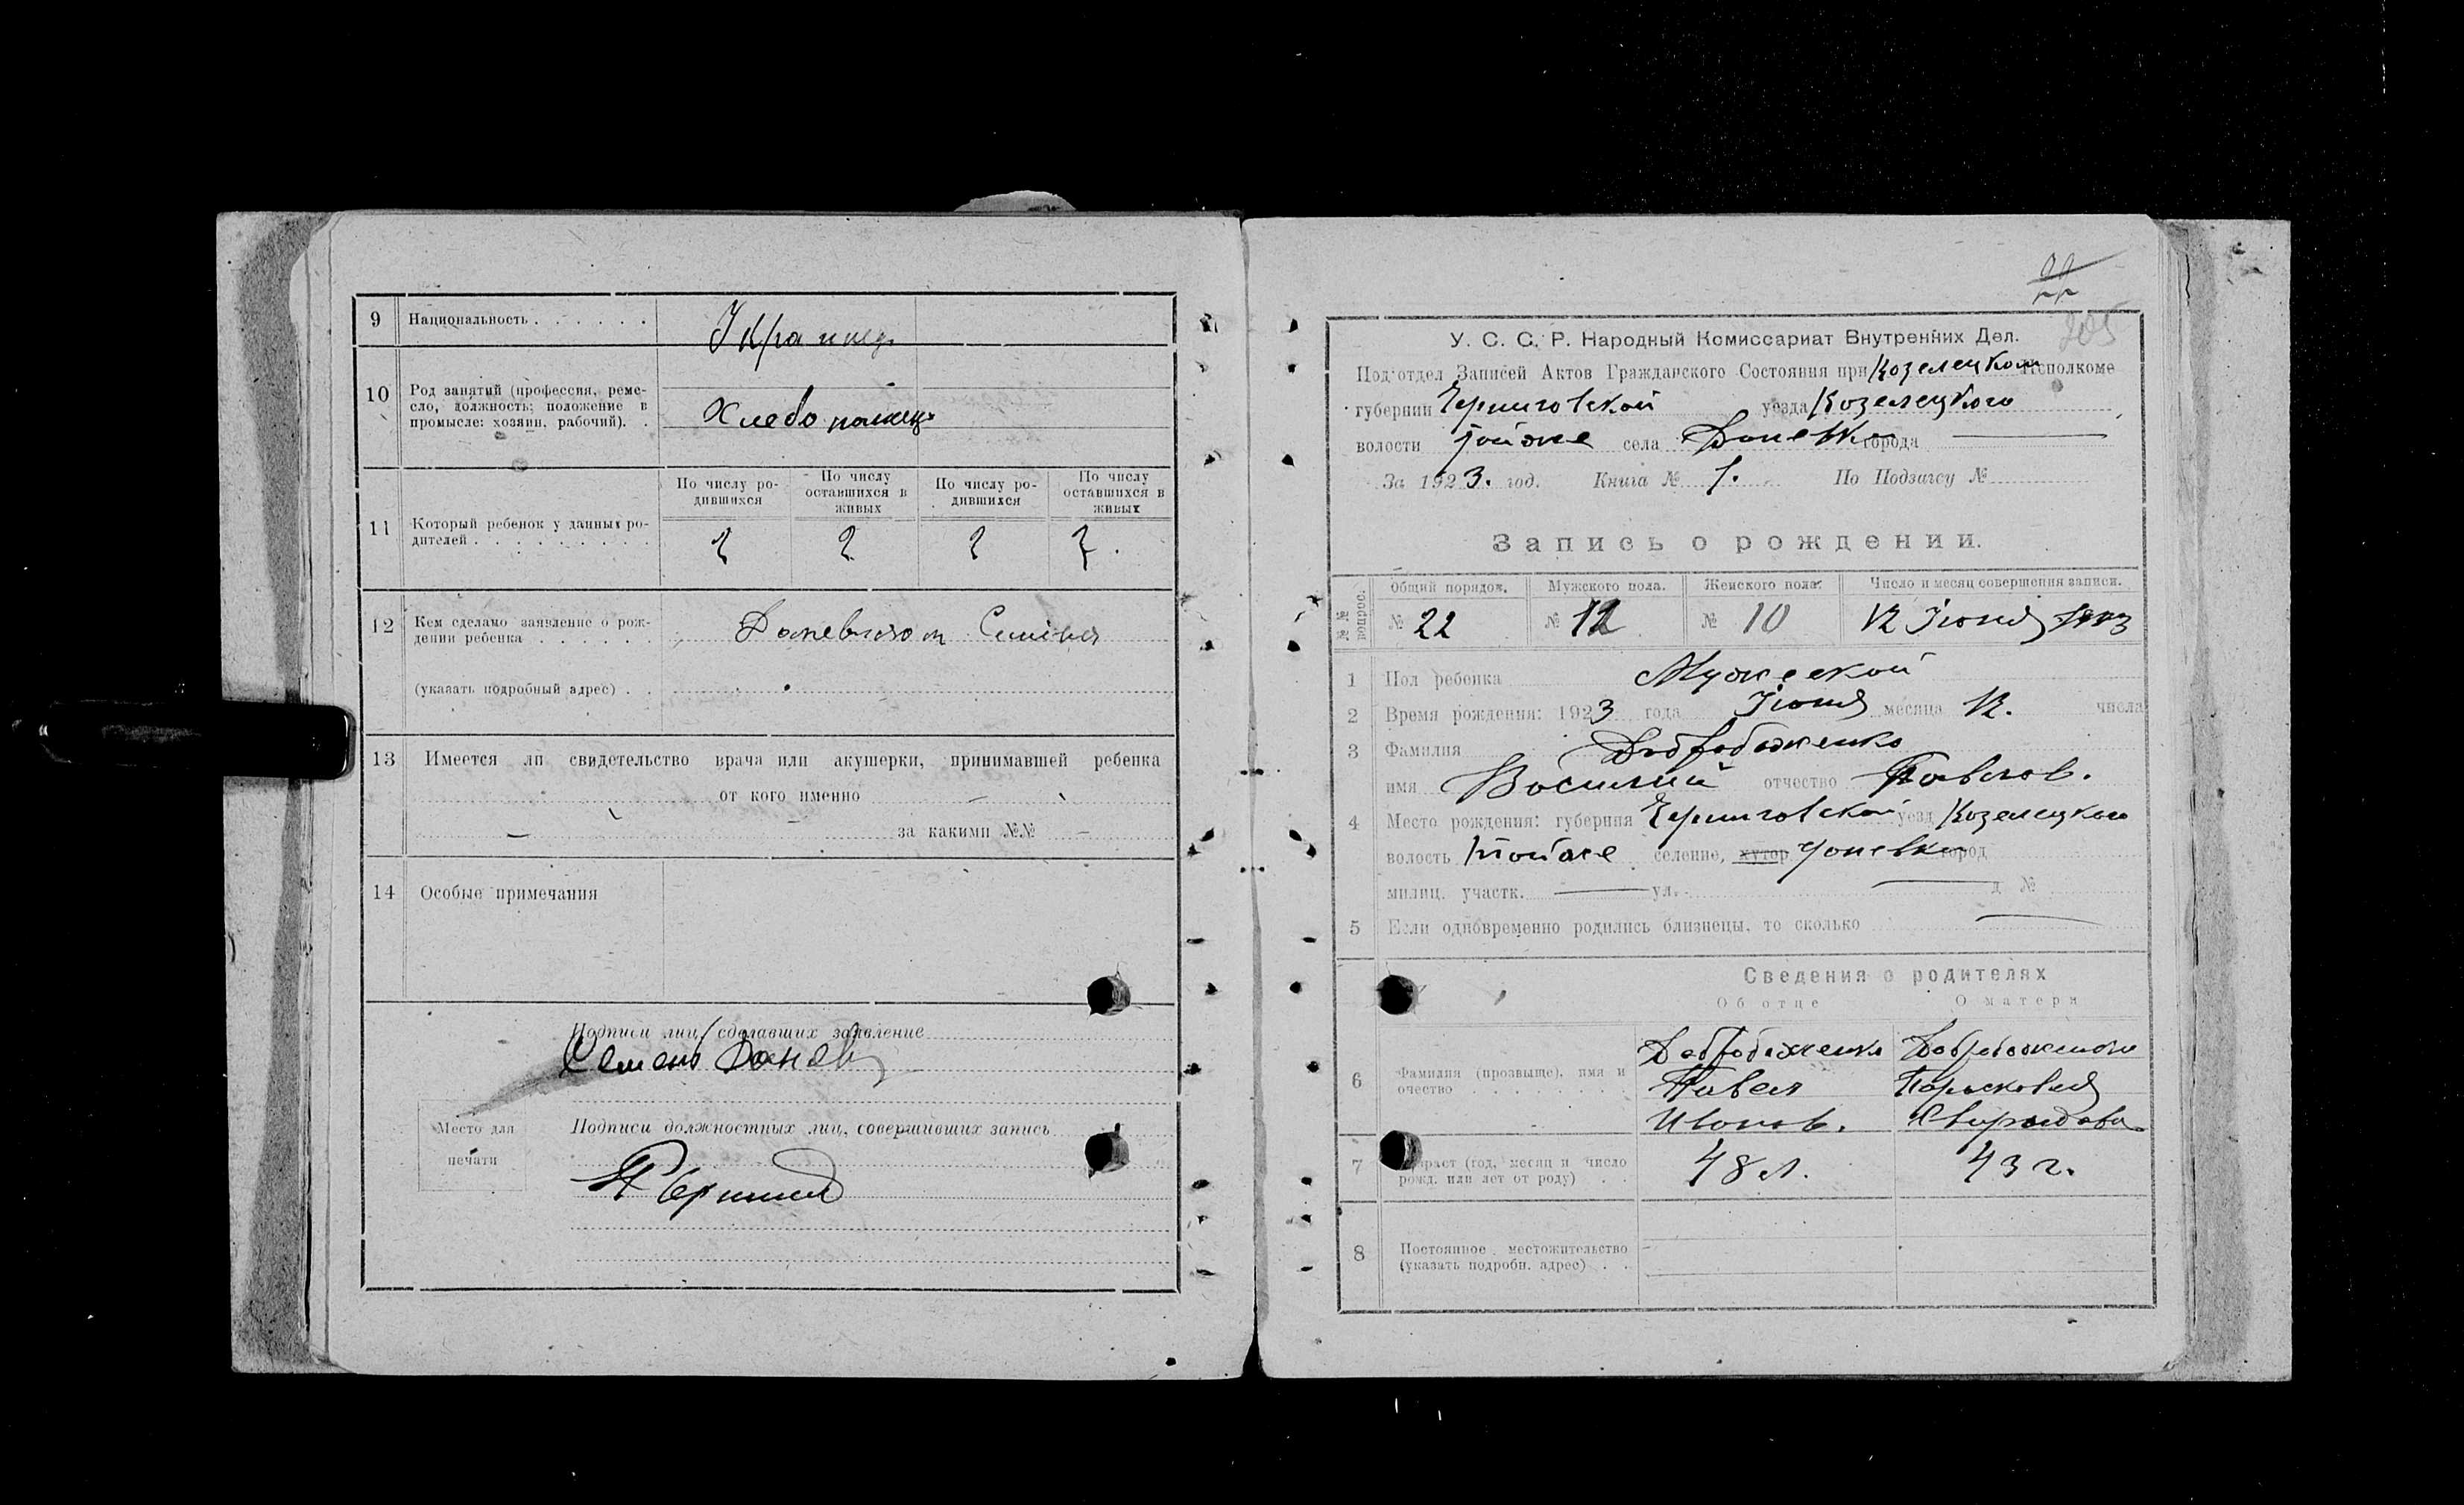 9 Национальность . . . . . .
Украинец
10 Род занятий (профессия, реме-
сло, должность; положение в
промысле: хозяин, рабочий). .
Хлебопашец
11 Который ребенок у данных ро-
дителей . . . . . . . . .
По числу ро-
дившихся
По числу
оставшихся в
живых
По числу ро-
дившихся
По числу
оставшихся в
живых
2 2 2 2.
12 Кем сделано заявление о рож-
дении ребенка . . . . . .
(указать подробный адрес) . .
13 Имеется ли свидетельство врача или акушерки, принимавшей ребенка
от кого именно
за какими №№
14 Особые примечания
Подписи лиц, сделавших заявление
Семен
Место для
печати
Подписи должностных лиц, совершивших запись
22
205
У. С. С. Р. Народный Комиссариат Внутренних Дел.
Под'отдел Записей Актов Гражданского Состояния при Козелецком Исполкоме
губернии Черниговской уезда Козелецкого
волости тойже села Даневки города
За 1923. год. Книга № 1. По Подзагсу №
Запись о рождении.
№№ вопрос.
Общий порядок. Мужского пола. Женского пола. Число и месяц совершения записи.
№ 22 № 12 № 10 12 Июня 1923
1 Пол ребенка Мужеской
2 Время рождения: 1923 года Июня месяца 12. числа
3 Фамилия Добробоженко
имя Василий отчество Павлов.
4 Место рождения: губерния Черниговской уезд Козелецкого
волость тойже селение, хутор город
милиц. участк. ул. д №
5 Если одновременно родились близнецы, то сколько
Сведения о родителях
Об отце О матери
6 Фамилия (прозвыще), имя и
очество . . . . . . . .
Добробоженко
Павел
Иванов.
Добробоженко
Парасковия
Свиридова
7 Возраст (год, месяц и число
рожд. или лет от роду) . .
48 л. 43 г.
8 Постоянное местожительство
(указать подробн. адрес) . .